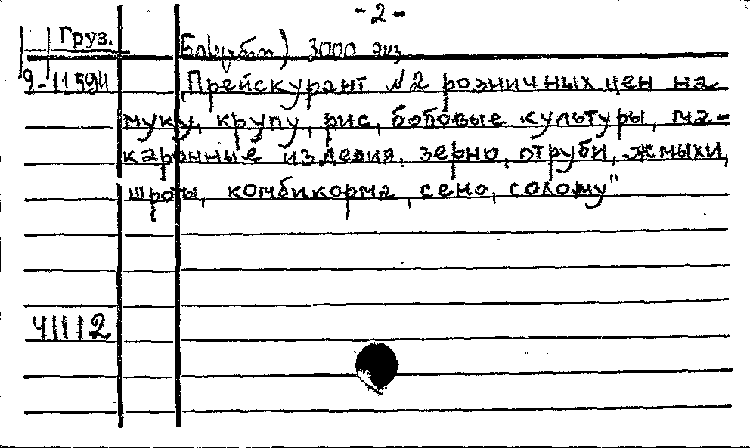 -2-
Груз. Б.(и,об.) 3000 экз
9-11594 „Прейскурант №2 розничных цен на
муку, крупу, рис, бобовые культуры, ма-
каронные изделия, зерно, отруби, жмыхи,
шроты, комбикорма, сено, солому"
41112